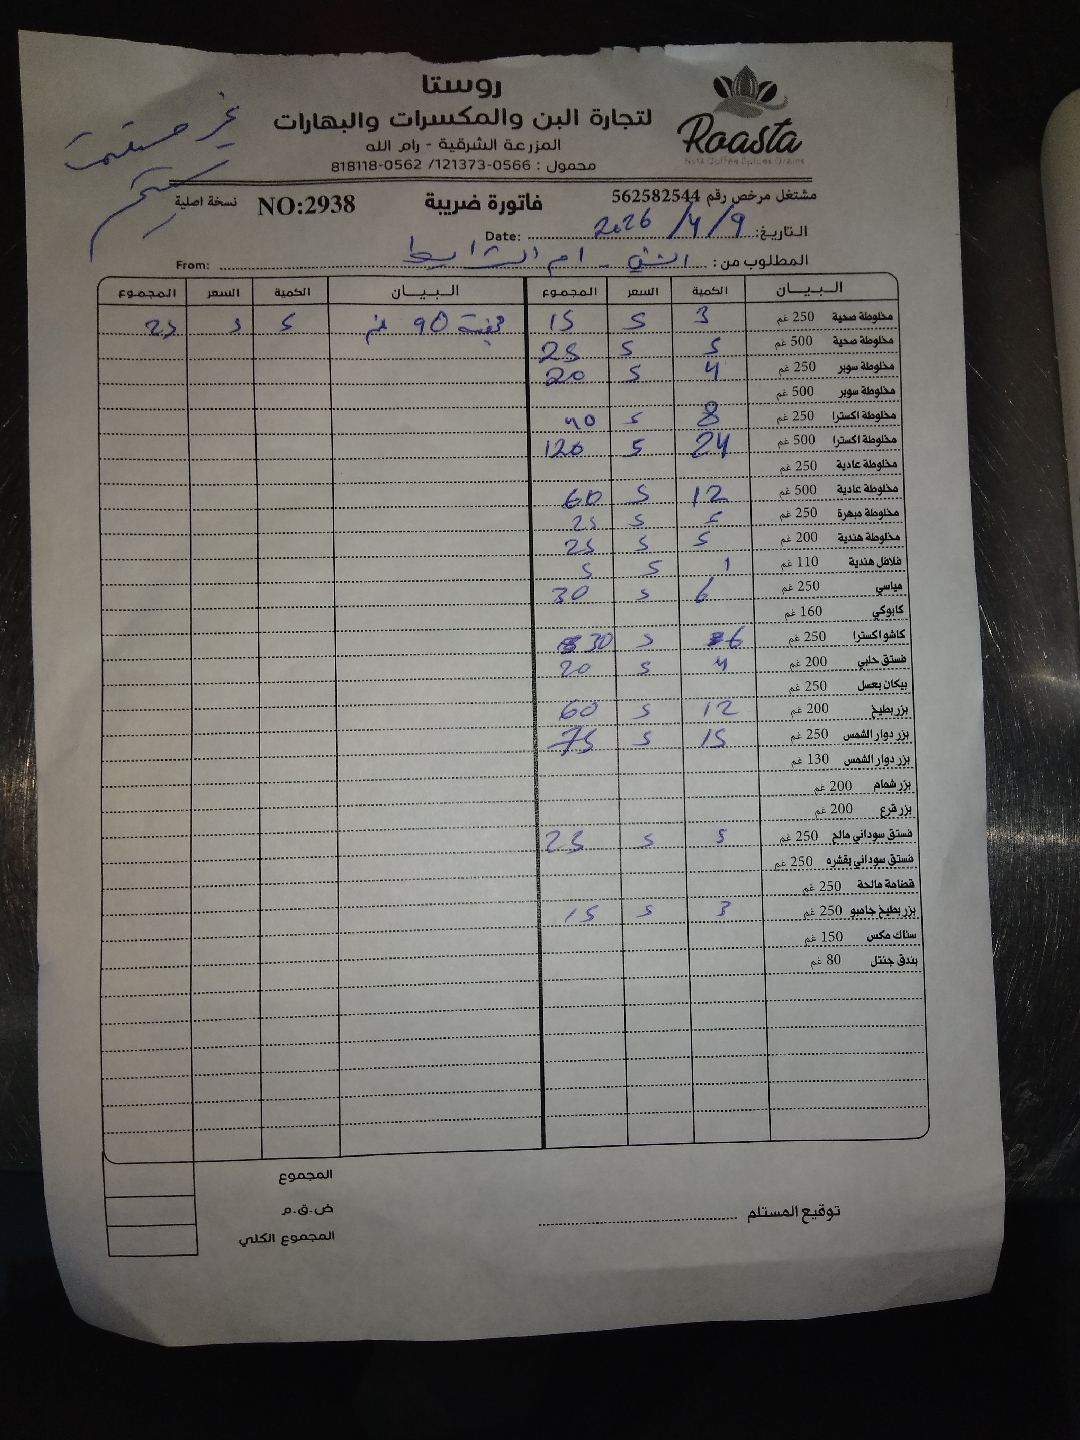 روستا
لتجارة البن والمكسرات والبهارات
المزرعة الشرقية - رام الله
محمول : 0566-121373/ 0562-818118
Roasta
Nuts Coffee Spices Grains
غير مستلمة
مشتغل مرخص رقم 562582544
فاتورة ضريبة
NO:2938
نسخة اصلية
التاريخ: 2026/4/9 Date:
المطلوب من: ام الشرايط From:
البـيـــان الكمية السعر المجموع البـيـــان الكمية السعر المجموع
مخلوطة صحية 250 غم 3 5 15 90 غم 5 5 25
مخلوطة صحية 500 غم 5 5 25
مخلوطة سوبر 250 غم 4 5 20
مخلوطة سوبر 500 غم
مخلوطة اكسترا 250 غم 8 5 40
مخلوطة اكسترا 500 غم 24 5 120
مخلوطة عادية 250 غم
مخلوطة عادية 500 غم 12 5 60
مخلوطة مبهرة 250 غم 5 5 25
مخلوطة هندية 200 غم 5 5 25
فلافل هندية 110 غم 1 5 5
مياسي 250 غم 6 5 30
كابوكي 160 غم
كاشو اكسترا 250 غم 6 5 30
فستق حلبي 200 غم 4 5 20
بيكان بعسل 250 غم
بزر بطيخ 200 غم 12 5 60
بزر دوار الشمس 250 غم 15 5 75
بزر دوار الشمس 130 غم
بزر شمام 200 غم
بزر قرع 200 غم
فستق سوداني مالح 250 غم 5 5 25
فستق سوداني بقشره 250 غم
قضامة مالحة 250 غم
بزر بطيخ جامبو 250 غم 3 5 15
سناك مكس 150 غم
بندق جنتل 80 غم
المجموع
ض.ق.م
المجموع الكلي
توقيع المستلم